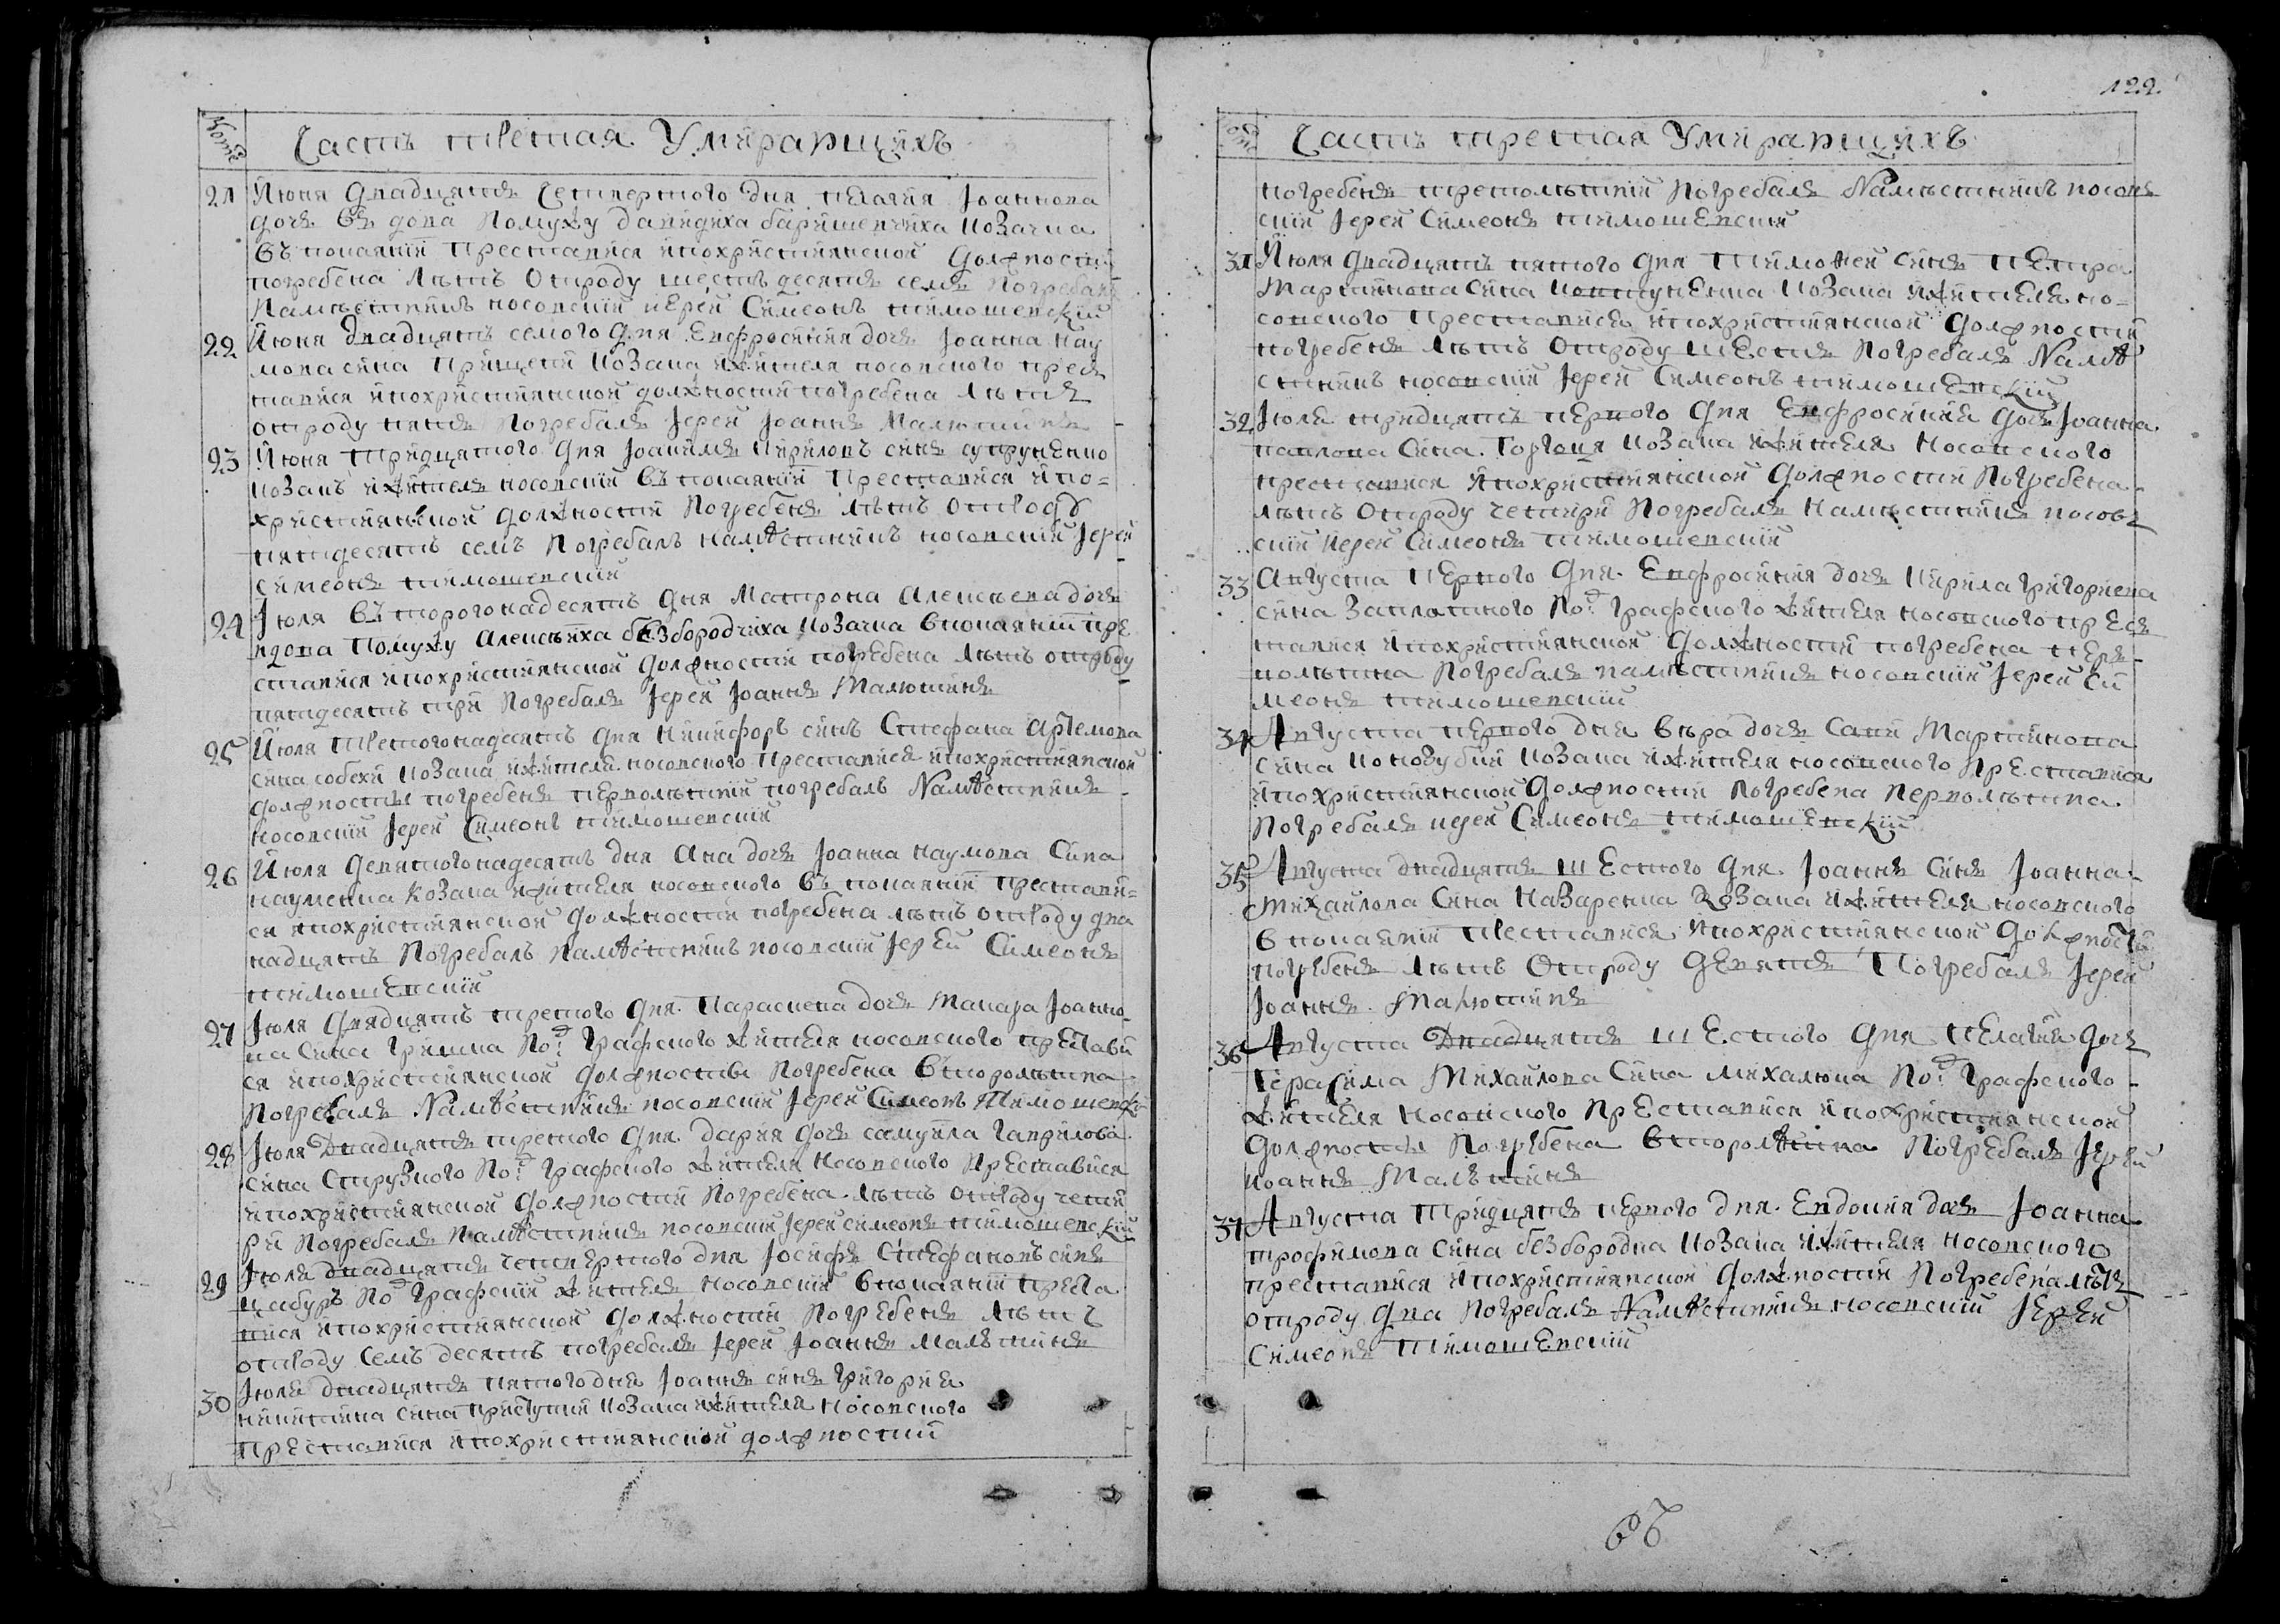 Часть третая Умирающихъ
21 Июня двадцятъ четвертого дня Пелагия Иоаннова
дочъ въ дова помужу Давидиха баришевчиха козачка
въ покаянии преставися ипохристиянской должности
погребена лѣтъ отроду шестъ десятъ семъ погребалъ
намѣстникъ носовский иерей Симеонъ тимошевский
22 Июня двадцятъ семого дня Евфросиния дочъ Иоанна нау
мова сина прищепи козака ижителя носовского прес
тавися ипохристиянской должности погребена лѣтъ
отроду пятъ погребалъ Иерей Иоаннъ Малютинъ
23 Июня тридцятого дня Иоакимъ Кириловъ синъ супруненко
козакъ ижитель носовский въ покаянии преставися ипо=
християнской должности погребенъ лѣтъ отроду
пятдесятъ семъ погребалъ намѣстникъ носовский Иерей
Симеонъ тимошевский
24 Июля въ торогонадесятъ дня Матрона Алексѣева дочъ
вдова помужу Алексѣиха безбородчиха козачка впокаянии пре
ставися ипохристиянской должности погребена лѣтъ отроду
пятдесятъ три погребалъ Иерей Иоаннъ Малютинъ
25 Июля третогонадесятъ дня Никифоръ синъ Стефана Артемова
сина собехи козака ижителя носовского преставися ипохристиянской
должности погребенъ перволѣтний погребалъ Намѣстникъ
носовский Иерей Симеонъ тимошевский
26 Июля девятогонадесятъ дня Ана дочъ Иоанна наумова сина
науменка козака ижителя носовского въ покаянии престави=
ся ипохристиянской должности погребена лѣтъ отроду два
надцятъ погребалъ намѣстникъ носовский Иерей Симеонъ
тимошевский
27 Июля двадцятъ третого дня Параскева дочъ Макара Иоанно
ва сина Гришка под. графского жителя носовского престави
ся ипохристиянской должности погребена второлѣтна
погребалъ Намѣстникъ носовский Иерей Симеонъ Тимошевский
28 Июля двадцятъ третого дня Дария дочъ самуила гаврилова
сина Струзного под. графского жителя носовского преставися
ипохристиянской должности погребена лѣтъ отроду чети
ри погребалъ намѣстникъ носовский Иерей симеонъ тимошевский
29 Июля двадцятъ четвертого дня Иосифъ Стефановъ синъ
цабуръ под графский житель носовский впокаянии преста
вися ипохристиянской должности погребенъ лѣтъ
отроду семъ десятъ погребалъ Иерей Иоаннъ малютинъ
30 Июля двадцятъ пятого дня Иоаннъ синъ Григория
никитина сина приступи козака ижителя носовского
преставися ипохристиянской должности
122
Часть третая Умирающихъ
погребенъ третолѣтний погребалъ Намѣстникъ носов
ский Иерей Симеонъ тимошевский
31 Июля двадцятъ пятого дня Тимофей синъ Петра
Мартинова сина Ковтуненка козака ижителя но=
совского преставися ипохристиянской должности
погребенъ лѣтъ отроду шестъ погребалъ Намѣ
стникъ носовский Иерей Симеонъ тимошевский
32 Июля тридцятъ первого дня Евфросиния дочъ Иоанна
павлова сина Горгоця козака ижителя носовского
преставися ипохристиянской должности погребена
лѣтъ отроду четири погребалъ намѣстникъ носов
ский Иерей Симеонъ тимошевский
33 Августа первого дня Евфросиния дочъ Кирила григориева
сина Заплотного под. графского жителя носовского прес
тавися ипохристиянской должности погребена пер
волѣтна погребалъ намѣстникъ носовский Иерей Си
меонъ тимошевский
34 Августа первого дня вѣра дочъ Сави Мартинова
сина козака ижителя носовского преставися
ипохристиянской должности погребена перволѣтна
погребалъ иерей Симеонъ тимошевский
35 Августа двадцятъ шестого дня Иоаннъ синъ Иоанна
михаилова сина Назаренка козака ижителя носовского
впокаянии преставися ипохристиянской должности
погребенъ лѣтъ отроду девятъ погребалъ Иерей
Иоаннъ Малютинъ
36 Августа двадцятъ шестого дня Пелагия дочъ
Герасима Михаилова сина михалюка под. графского
жителя носовского преставися ипохристиянской
должности погребена второлѣтна погребалъ Иерей
Иоаннъ Малютинъ
37 Августа тридцятъ первого дня Евдокия дочъ Иоанна
трофимова сина безбородка козака ижителя носовского
преставися ипохристиянской должности погребена лѣтъ
отроду два погребалъ Намѣстникъ носовский Иерей
Симеонъ тимошевский